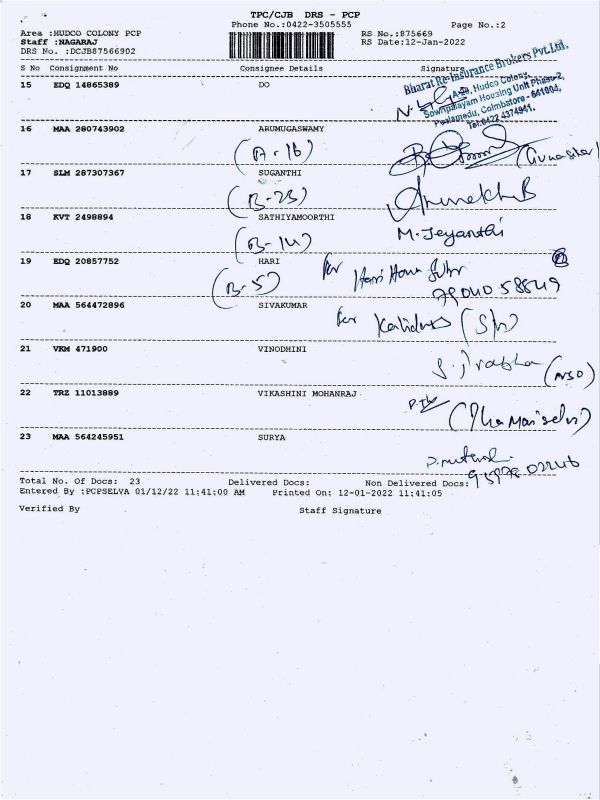 TPC/CJB DRS - PCP
Phone No.:0422-3505555 Page No.:2
Area :HUDCO COLONY PCP RS No.:875669
Staff :NAGARAJ RS Date:12-Jan-2022
DRS No. :DCJB87566902
S No Consignment No Consignee Details Signature
Bharat Re-Insurance Brokers Pvt.Ltd.
Hudco Colony,
Sowripalayam Housing Unit Phase-2,
Peelamedu, Coimbatore - 641004.
Tel:0422 4374941.
15 EDQ 14865389 DO
16 MAA 280743902 ARUMUGASWAMY
(A-16)
17 SLM 287307367 SUGANTHI
(B-23)
18 KVT 2498894 SATHIYAMOORTHI
(B-14) M.Jeyanthi
19 EDQ 20857752 HARI
(B-5) for Hari Hara
79040 58849
20 MAA 564472896 SIVAKUMAR
for Kalidass
21 VKM 471900 VINODHINI
22 TRZ 11013889 VIKASHINI MOHANRAJ
23 MAA 564245951 SURYA
Total No. Of Docs: 23 Delivered Docs: Non Delivered Docs:
Entered By :PCPSELVA 01/12/22 11:41:00 AM Printed On: 12-01-2022 11:41:05
Verified By Staff Signature